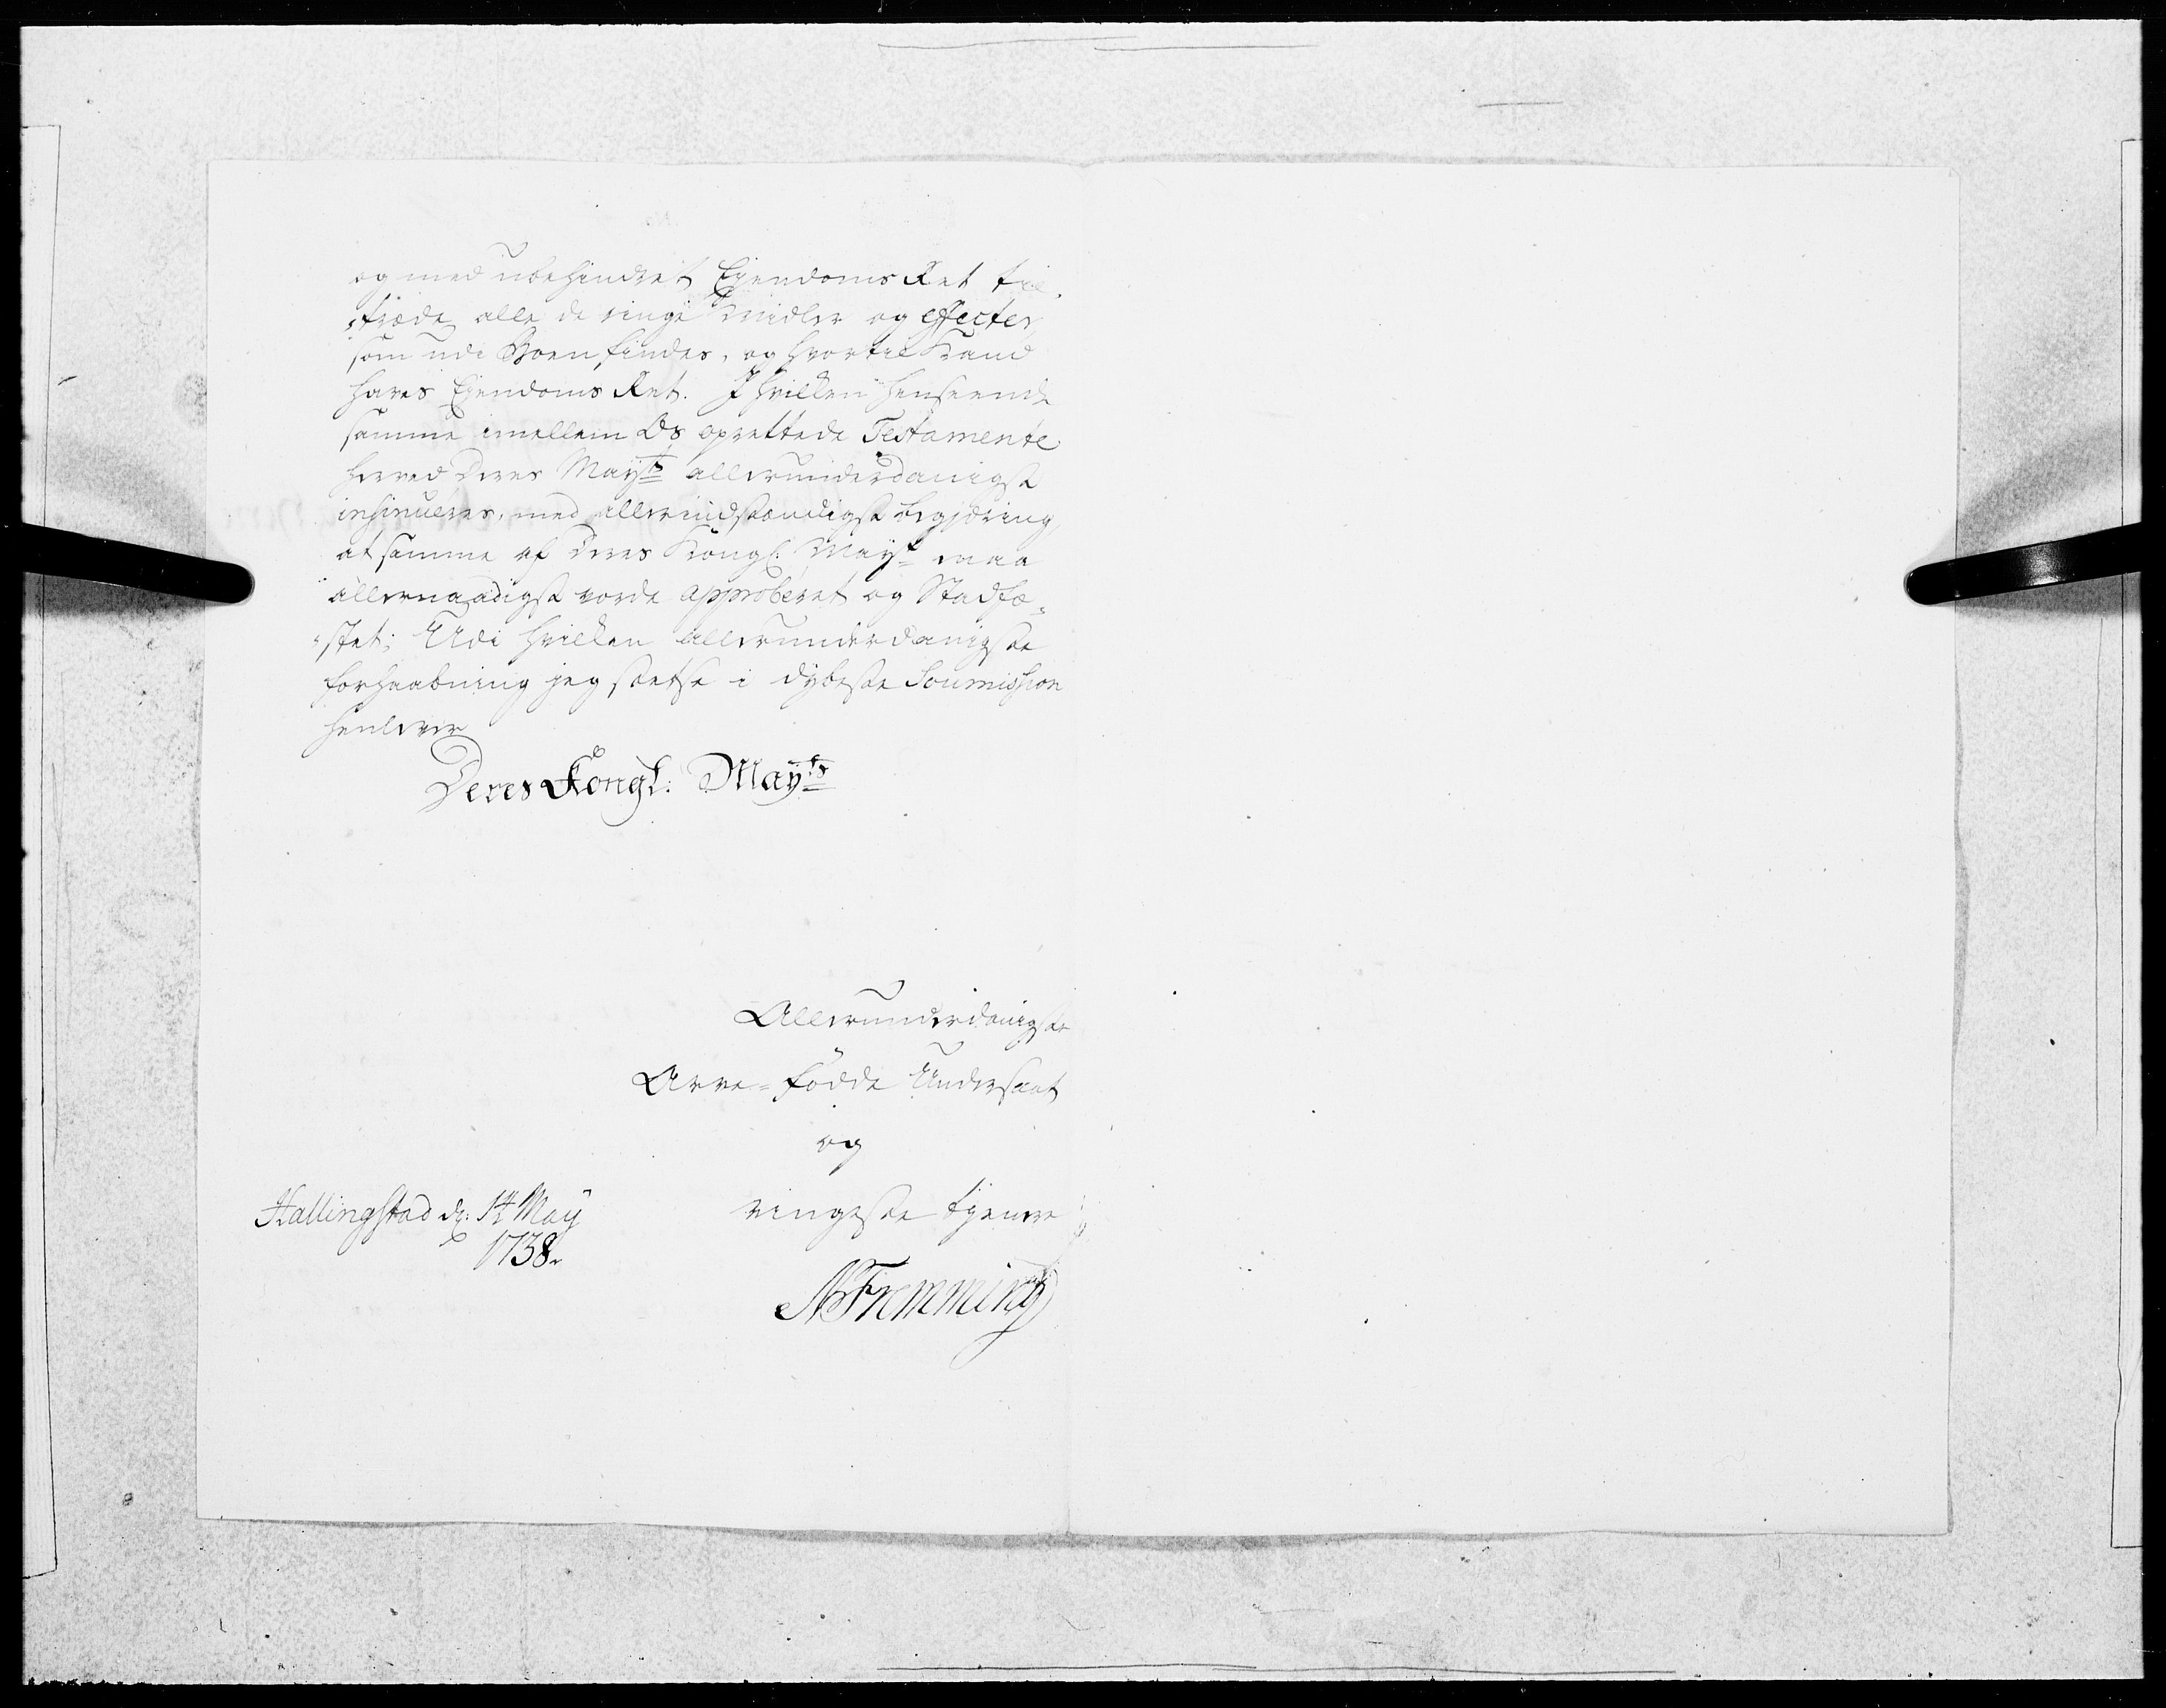 og med ubehindret Eyendoms Ret til,
,træde alle de ringe Midler og effecter,
som udi Boen findes, og hvortil Kand
haves Eyendoms Ret. J hvilken henseende
samme imellem Os oprettede Testamente
herved Deres Mayts allerunderdanigst
insinueres, med allerindstændigst begjæring
at samme af Deres Kongl: Mayt maa
allernaadigst vorde approberet og Stadfæ„
„stet; Udi hvilken allerunderdanigste
forhaabning jeg stetse i dybeste Soumission
henlever
Deres Kongl: Mayts
Allerunderdanigste
Arve=fødde Undersaat
og
ringeste tjenere
Hallingstad d: 14 May
1738.
Fremming